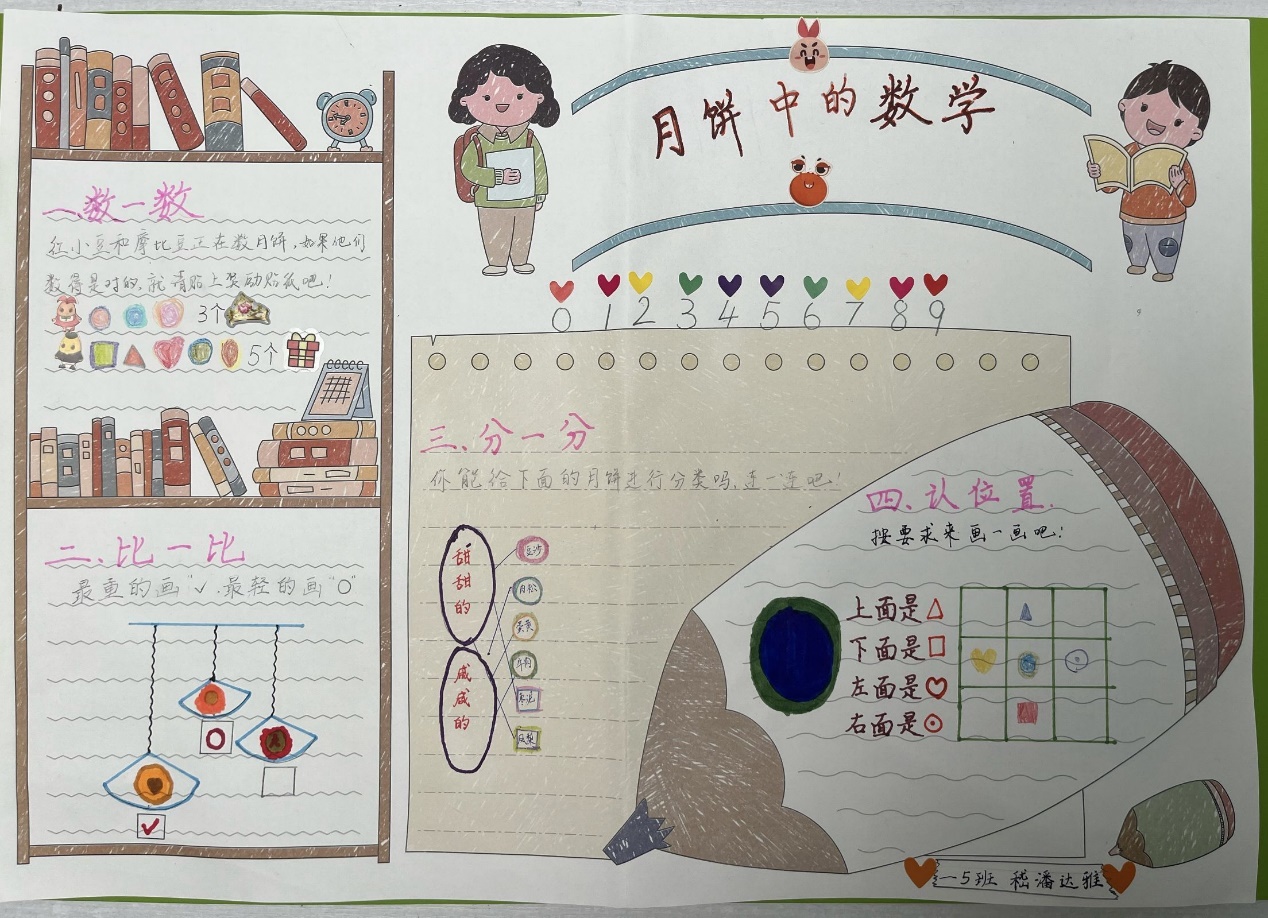 月饼中的数学
0 1 2 3 4 5 6 7 8 9
一、数一数
红小豆和摩比豆正在数月饼,如果他们
数得是对的,就请贴上奖励贴纸吧!
3个
5个
二、比一比
最重的画"✓",最轻的画"O"
三、分一分
你能给下面的月饼进行分类吗,连一连吧!
甜甜的
咸咸的
豆沙
肉松
蛋黄
牛肉
枣泥
凤梨
四、认位置.
按要求来画一画吧!
上面是△
下面是□
左面是♡
右面是⊙
一5班 嵇潘达雅